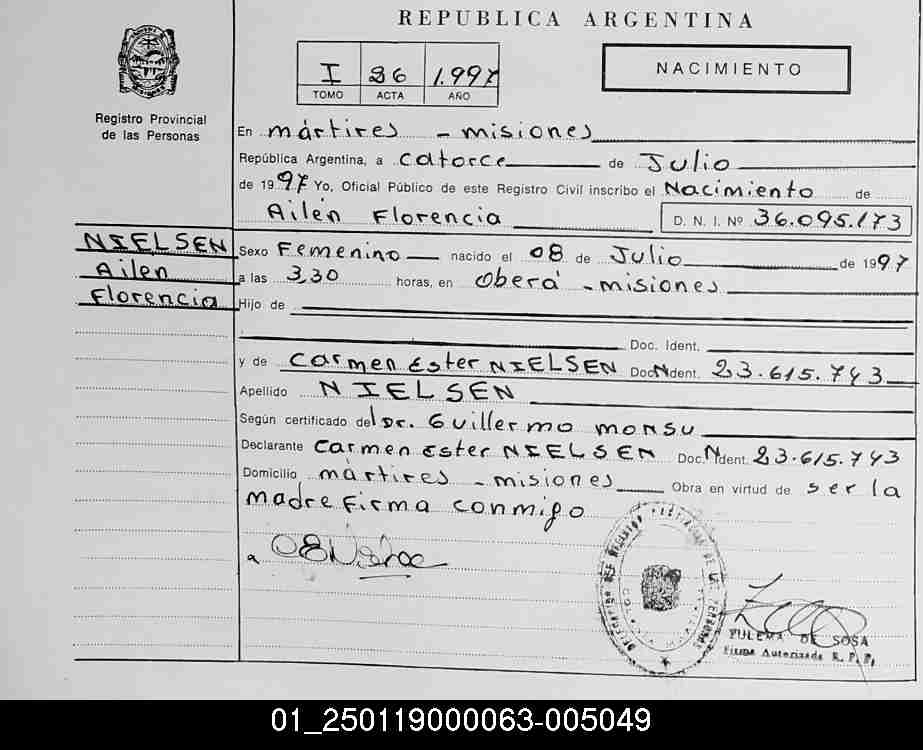 REPUBLICA ARGENTINA
I 36 1.997
TOMO ACTA AÑO
NACIMIENTO
Registro Provincial
de las Personas
En mártires - misiones
República Argentina, a catorce de Julio
de 1997 Yo, Oficial Público de este Registro Civil inscribo el Nacimiento de
Ailén Florencia D. N. I. Nº 36.095.173
NIELSEN
Ailén
Florencia
Sexo Femenino nacido el 08 de Julio de 1997
a las 3,30 horas, en Oberá - misiones
Hijo de
Doc. Ident.
y de Carmen Ester NIELSEN Doc. Ident. 23.615.743
Apellido NIELSEN
Según certificado del Dr. Guillermo Monsu
Declarante Carmen Ester NIELSEN Doc. Ident. 23.615.743
Domicilio mártires - misiones Obra en virtud de ser la
madre firma conmigo
ZULEMA DE SOSA
Firma Autorizada R. P. P.
01_250119000063-005049